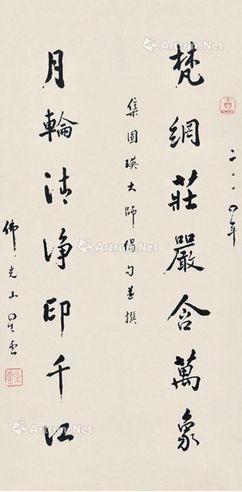 二〇〇四年
梵網莊嚴含萬象
集圓瑛大師偈句並撰
月輪清淨印千江
佛光山星雲
Artron.Net
Artron.Net